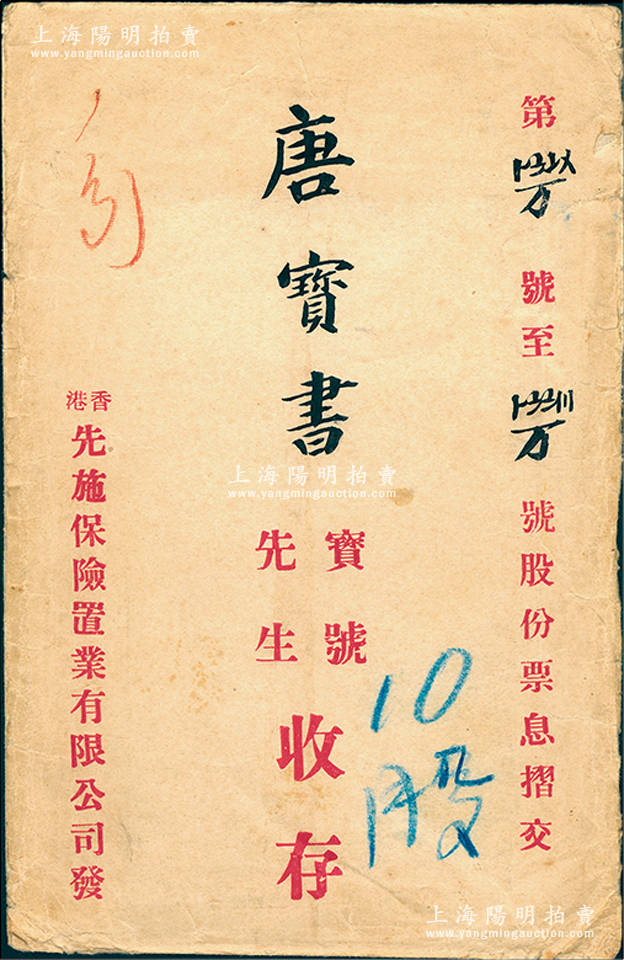 上海陽明拍賣
www.yangmingauction.com
第
號至
號股份票息摺交
唐寶書
寶號
先生
收存
10
股
香港
先施保險置業有限公司發
上海陽明拍賣
www.yangmingauction.com
上海陽明拍賣
www.yangmingauction.com